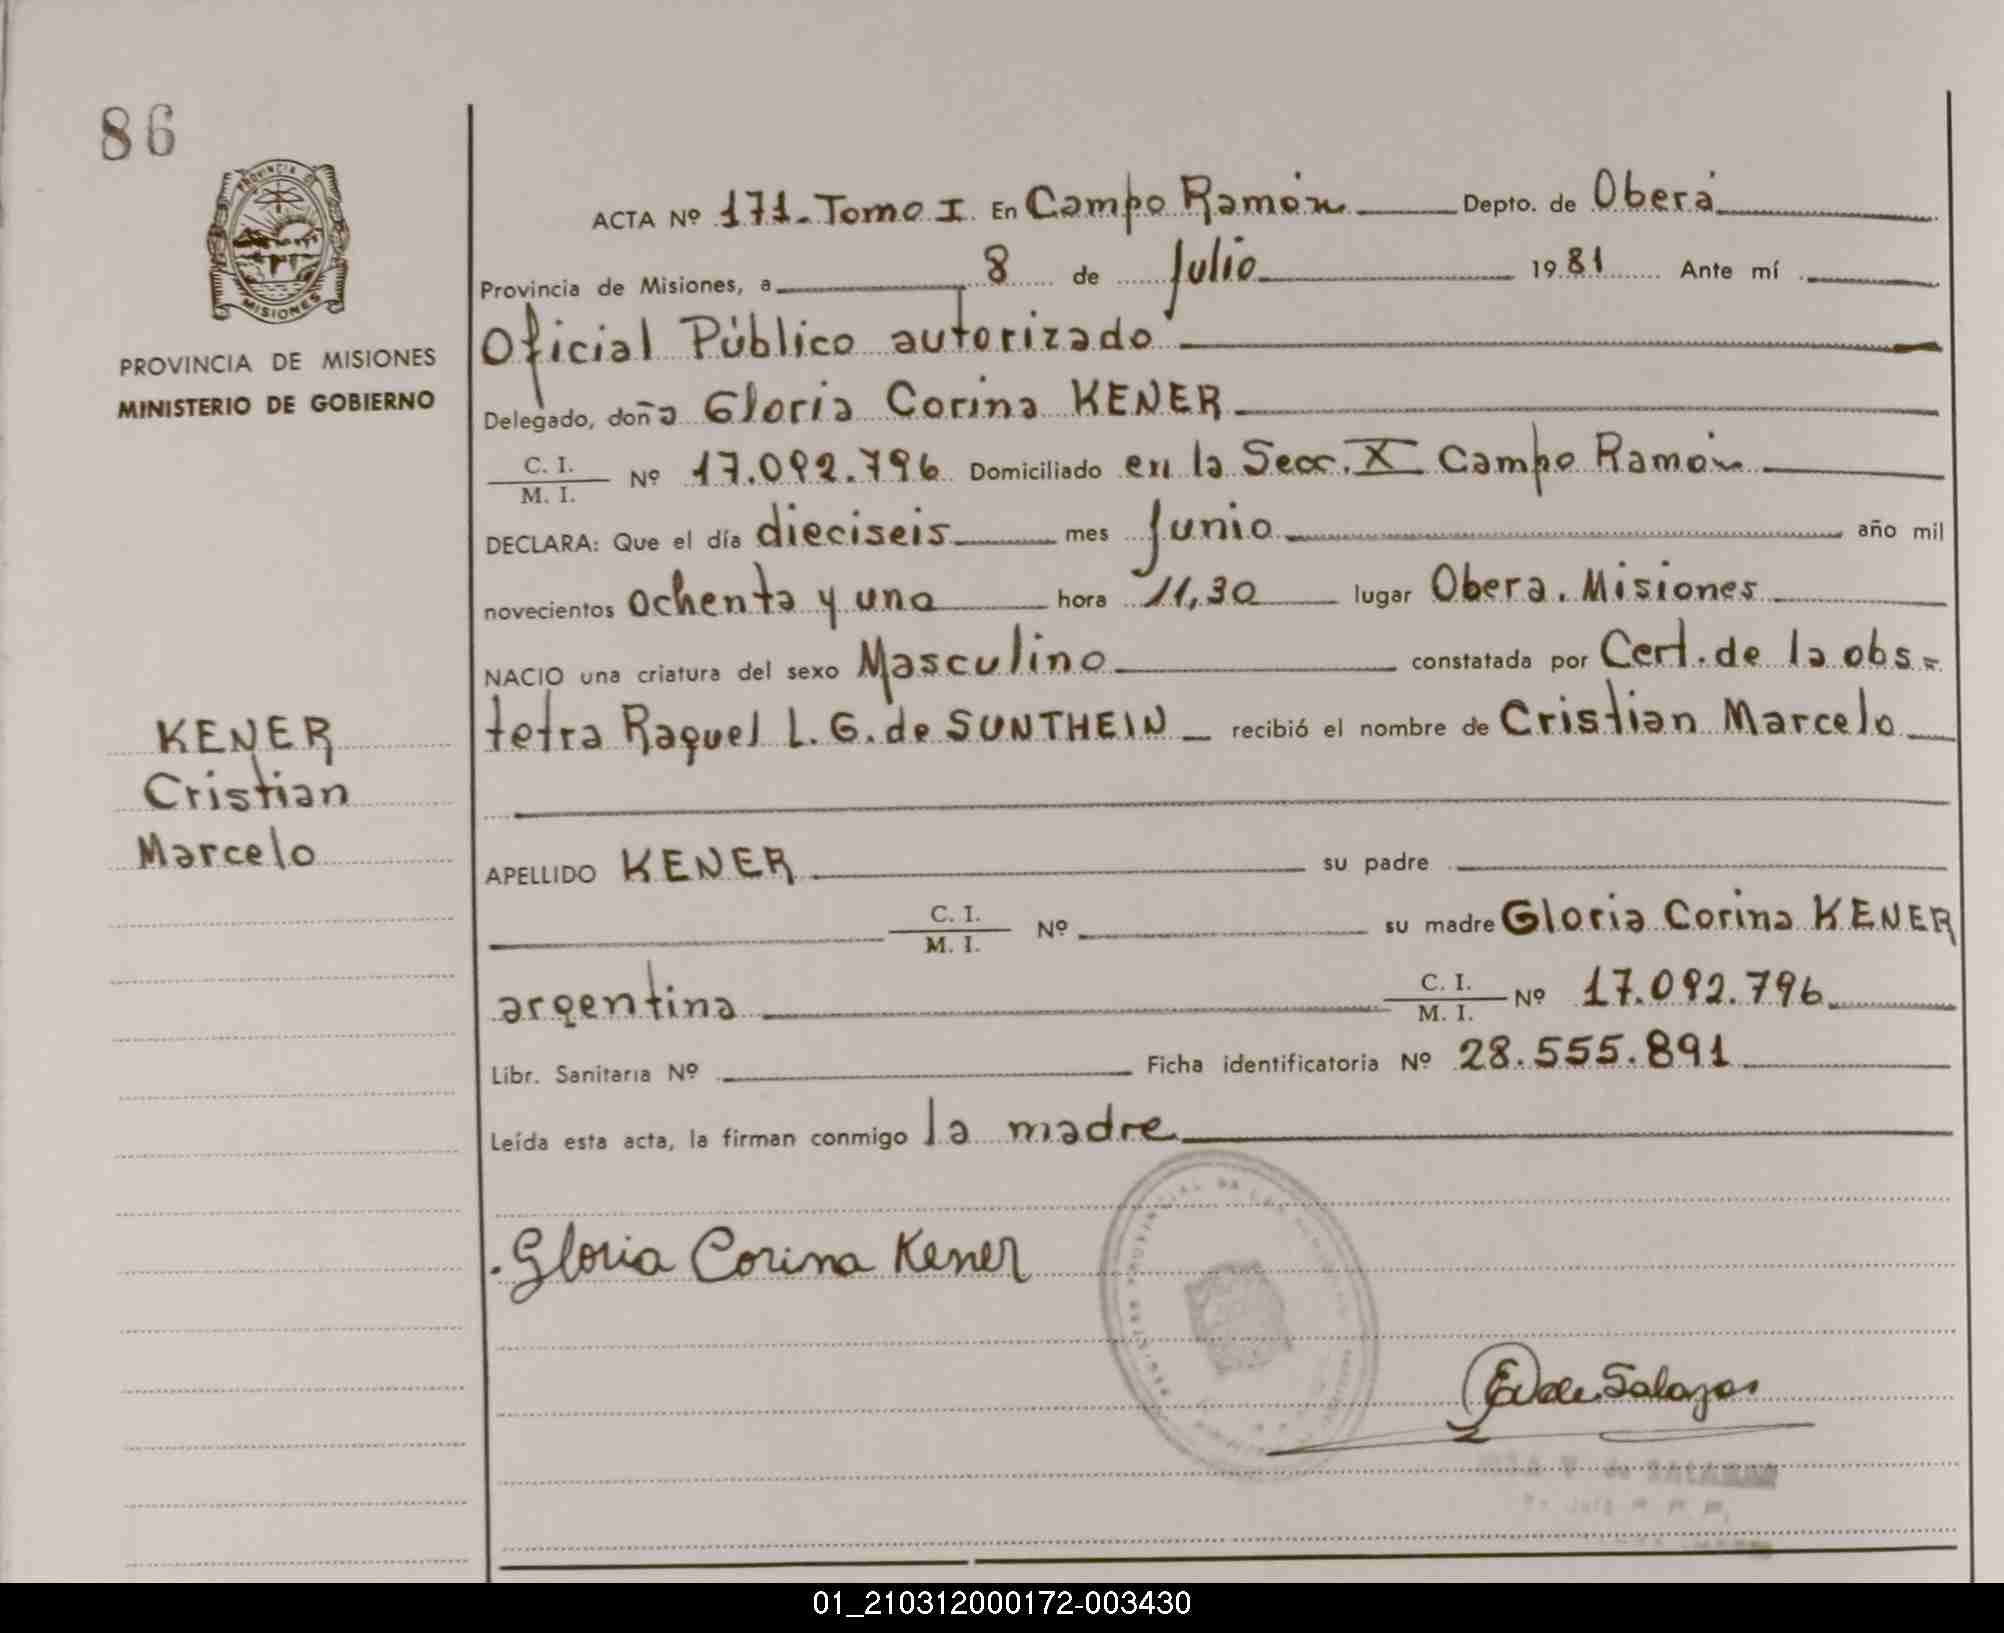 86
PROVINCIA DE
MISIONES
PROVINCIA DE MISIONES
MINISTERIO DE GOBIERNO
KENER
Cristian
Marcelo
ACTA Nº 171. Tomo I En Campo Ramón Depto. de Oberá
Provincia de Misiones, a 8 de Julio 1981 Ante mí
Oficial Público autorizado
Delegado, doña Gloria Corina KENER
C. I.
M. I. Nº 17.092.796 Domiciliado en la Secc. X Campo Ramón
DECLARA: Que el día dieciseis mes Junio año mil
novecientos ochenta y uno hora 11,30 lugar Obera. Misiones
NACIO una criatura del sexo Masculino constatada por Cert. de la obs=
tetra Raquel L. G. de SUNTHEIN recibió el nombre de Cristian Marcelo
APELLIDO KENER su padre
C. I.
M. I. Nº su madre Gloria Corina KENER
argentina C. I.
M. I. Nº 17.092.796
Libr. Sanitaria Nº Ficha identificatoria Nº 28.555.891
Leída esta acta, la firman conmigo la madre
Gloria Corina Kener
de Salazar
de SALAZAR
01_210312000172-003430